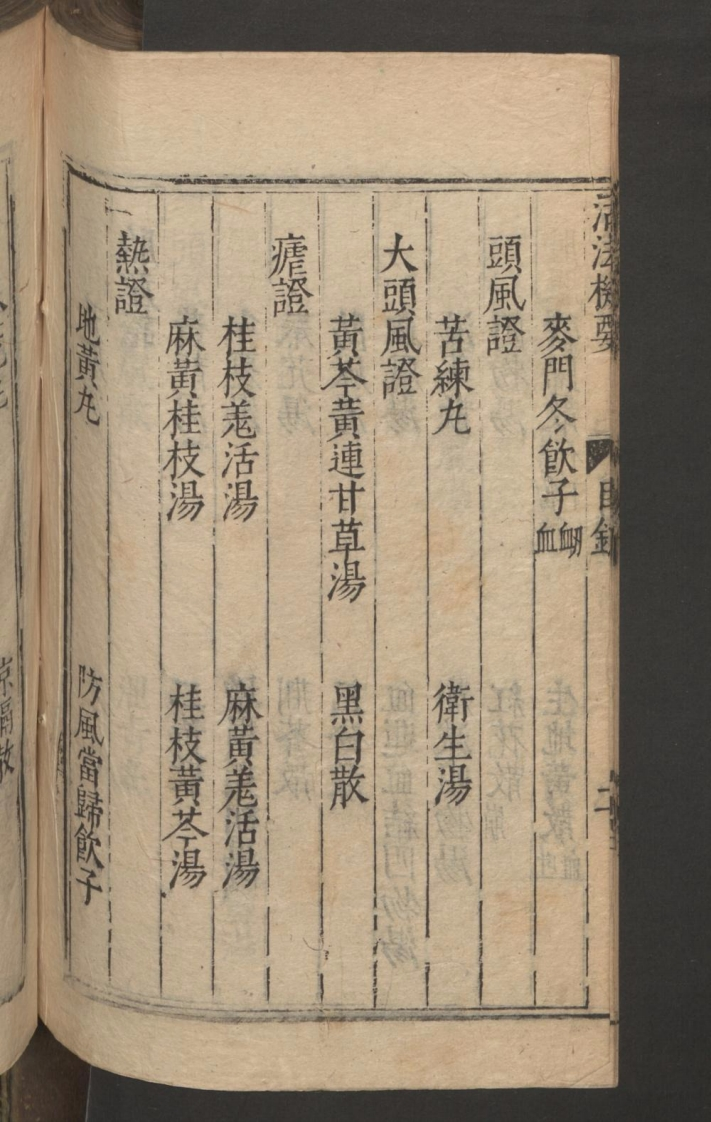 活法機要
目錄
二
麥門冬飲子衂血
頭風證
苦練丸 衛生湯
大頭風證
黃芩黃連甘草湯 黑白散
瘧證
桂枝羗活湯 麻黃羗活湯
麻黃桂枝湯 桂枝黃芩湯
熱證
地黃丸 防風當歸飲子